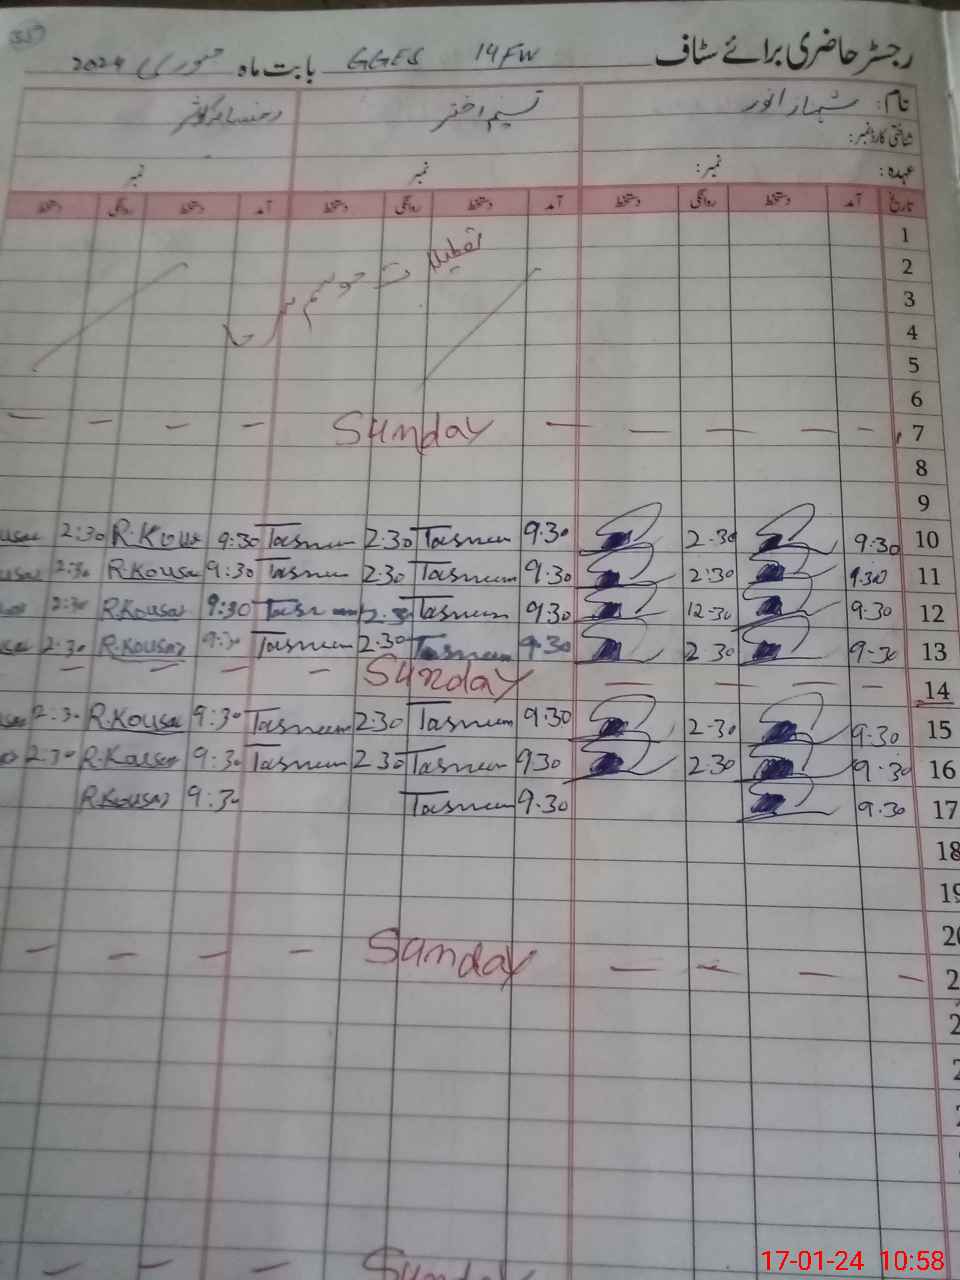 رجسٹر حاضری برائے سٹاف 14FW GGES بابت ماہ جنوری 2024
نام: شہناز انور تسنیم اختر
شناختی کارڈ نمبر:
عہدہ: نمبر: نمبر نمبر
تاریخ آمد دستخط روانگی دستخط آمد دستخط روانگی دستخط آمد دستخط روانگی دستخط
1
تعطیلات موسم سرما
2
3
4
5
6
7 Sunday
8
9
10 9:30 2-30 9:30 Tasneem 2:30 Tasneem 9:30 R.Kousar 2:30
11 9:30 2:30 9:30 Tasneem 2:30 Tasneem 9:30 R.Kousar 2:30
12 9-30 12-30 9:30 Tasneem 2:30 Tasneem 9:30 R.Kousar 2:30
13 9-30 2 30 9:30 Tasneem 2:30 Tasneem 9:30 R.Kousar 2:30
14 Sunday
15 9-30 2-30 9:30 Tasneem 2:30 Tasneem 9:30 R.Kousar 2:30
16 9-30 2:30 9:30 Tasneem 2 30 Tasneem 9:30 R.Kousar 2:30
17 9-30 9-30 Tasneem 9:30 R.Kousar
18
19
20
Sunday
Sunday
17-01-24 10:58